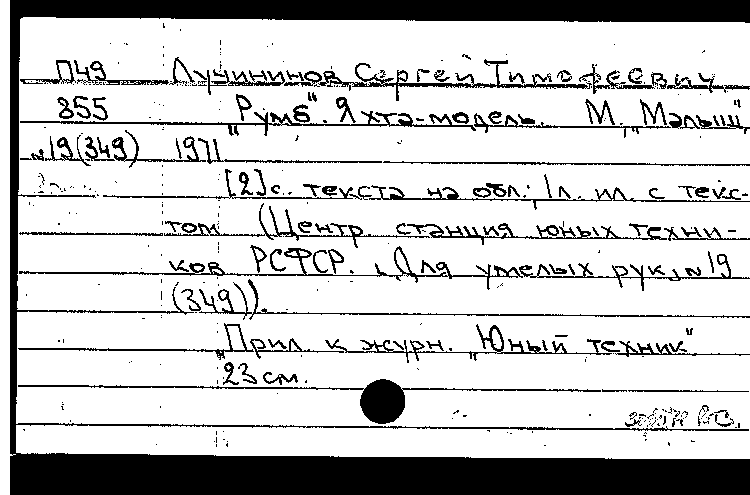 П49 Лучининов Сергей Тимофеевич
855 „Румб“. Яхта-модель. М., „Малыш“,
№19(349) 1971
[2]с. текста на обл.; 1л. ил. с текс-
том (Центр. станция юных техни-
ков РСФСР. „Для умелых рук“, №19
(349)).
„Прил. к журн. „Юный техник“
23 см.